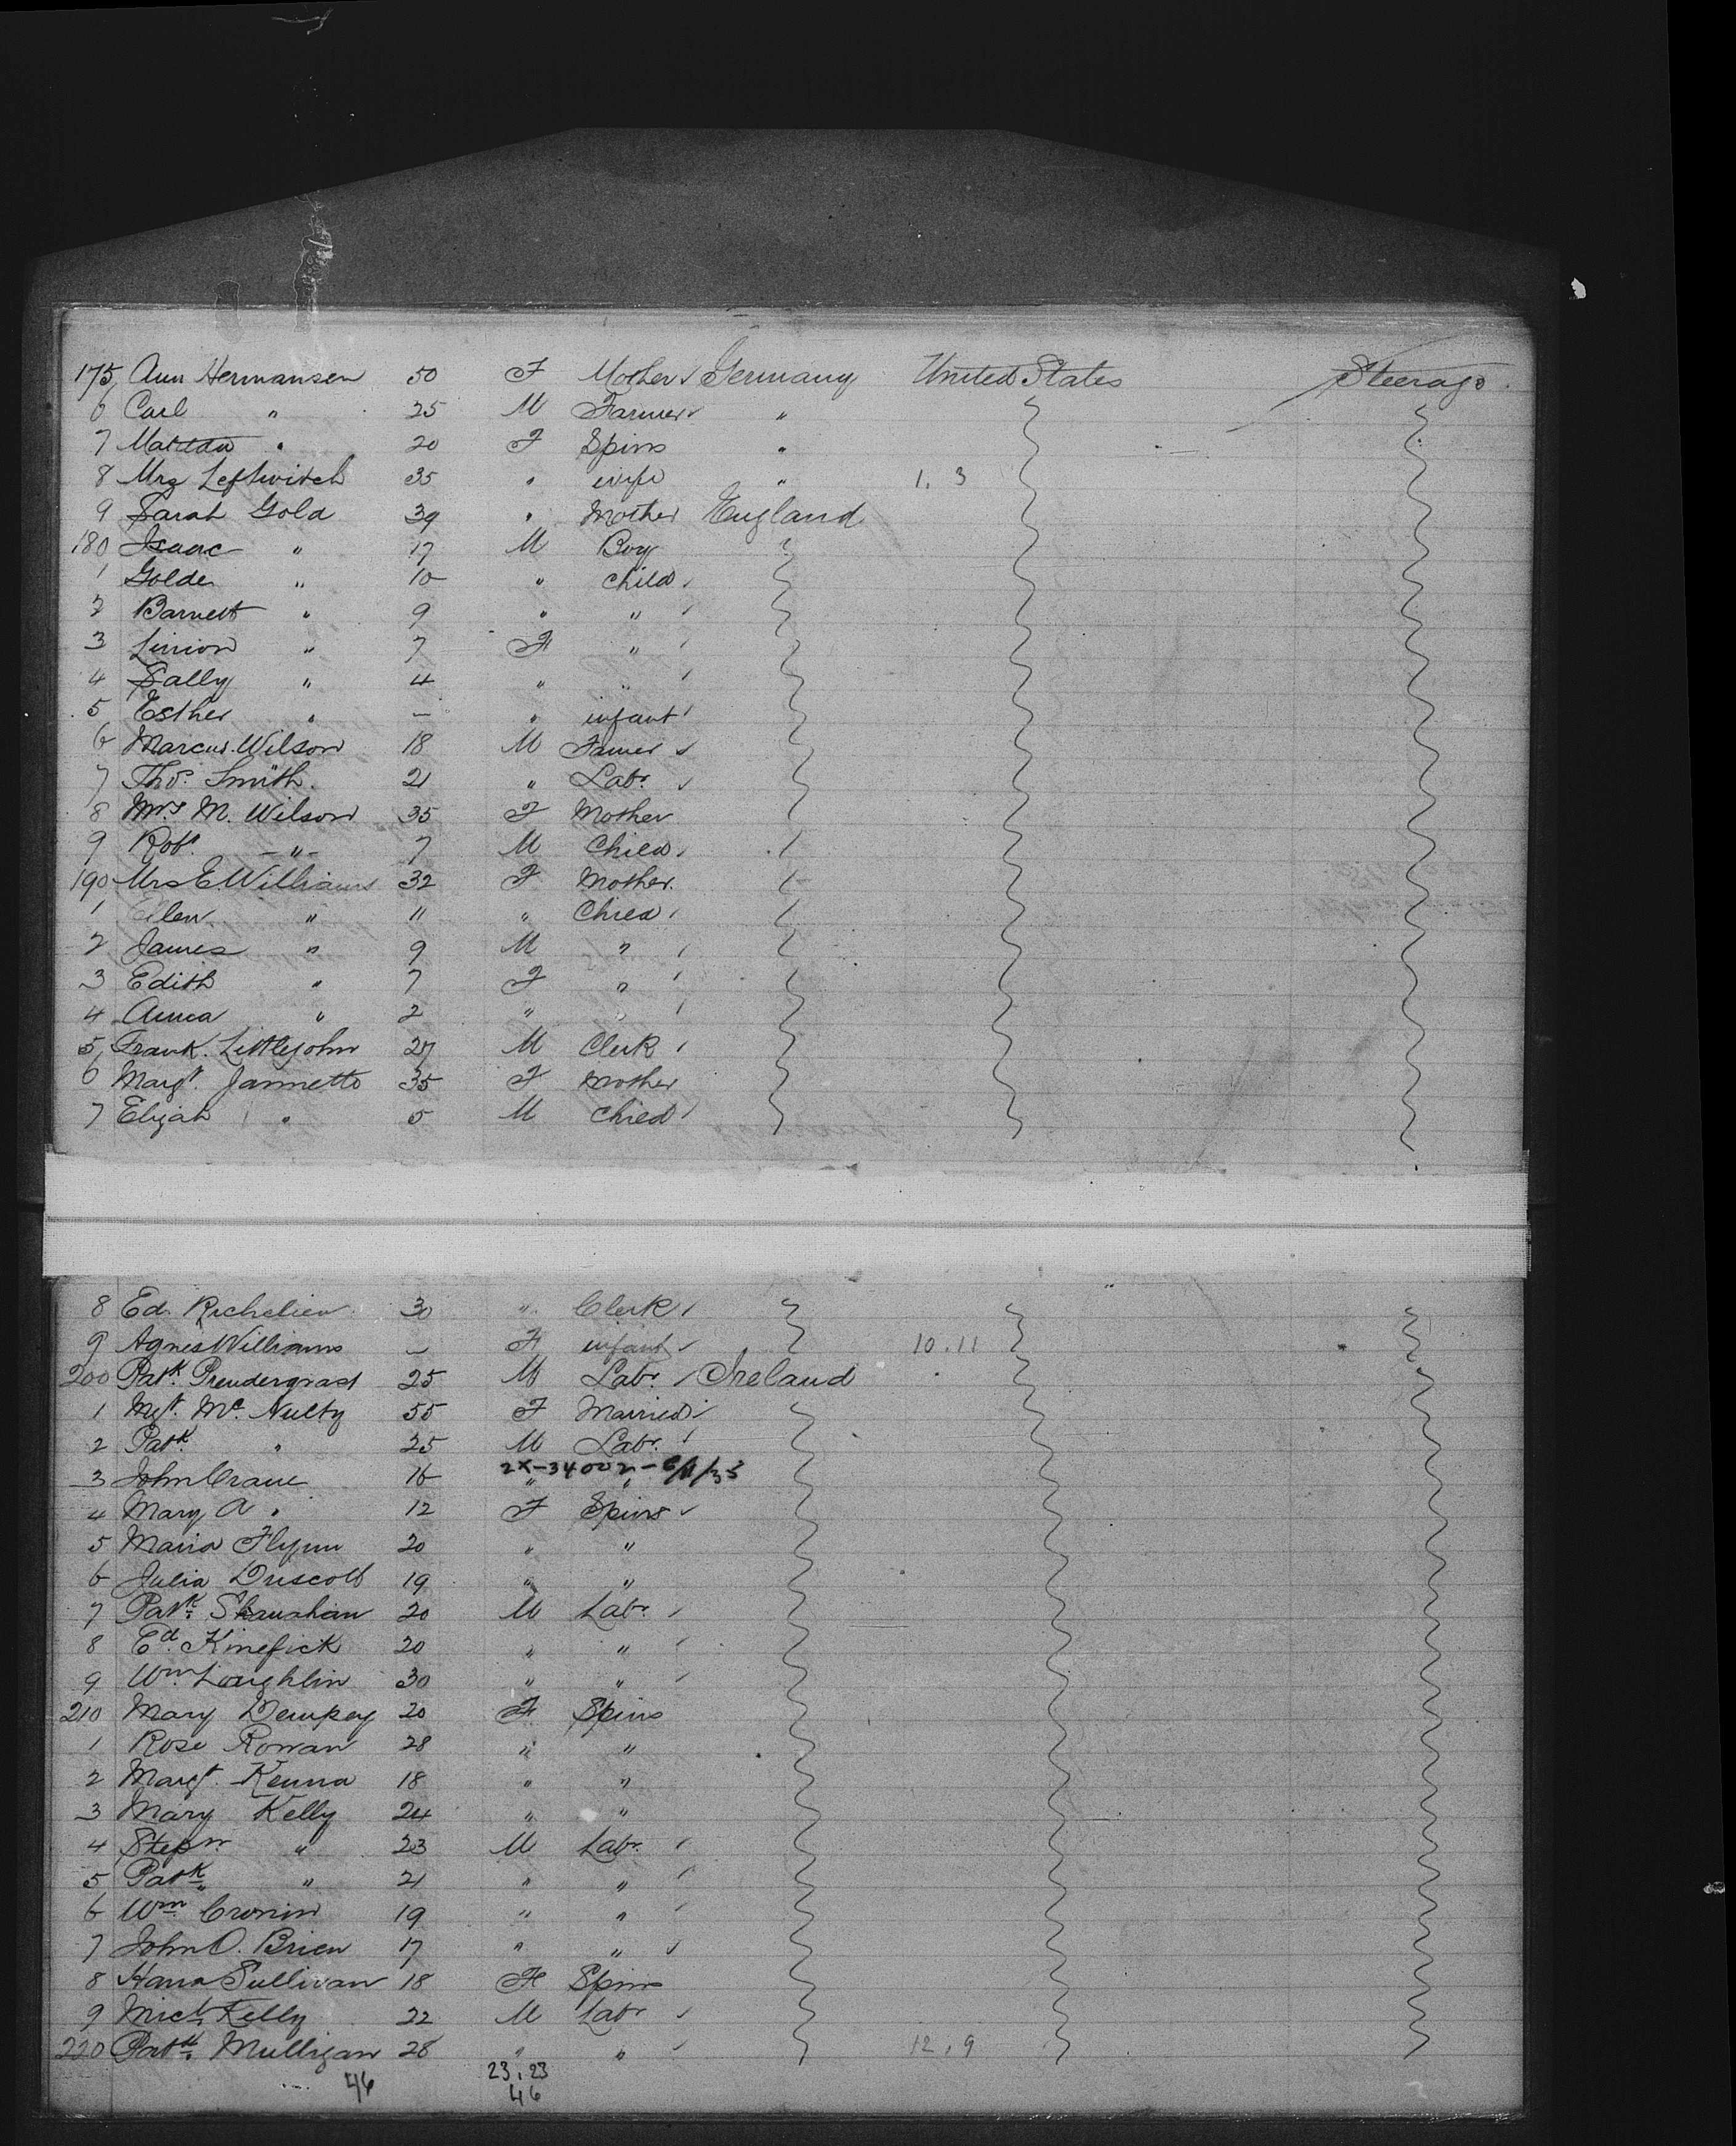 175 Ann Hermansen 50 F Mother Germany United States Steerage
6 Carl " 25 M Farmer "
7 Matilda " 20 F Spins "
8 Mrs Leftwitch 35 " wife " 1. 3
9 Sarah Gold 39 " Mother England
180 Isaac " 17 M Boy
1 Golde " 10 " child
2 Barnett " 9 " "
3 " 7 F "
4 Sally " 4 " "
5 Esther " — " infant
6 Marcus Wilson 18 M Famer
7 Thos. Smith. 21 " Labr.
8 Mrs M. Wilson 35 F Mother
9 Robt. —"— 7 M Child
190 Mrs E Williams 32 F Mother.
1 Ellen " 11 " Child
2 James " 9 M "
3 Edith " 7 F "
4 Anna " 2 " "
5 Frank. Littlejohn 27 M Clerk
6 Margt. Jannetto 35 F Mother
7 Elijah " 5 M Child
8 Ed. Richelieu 30 " Clerk
9 Agnes Williams — F infant 10.11
200 Patk. Prendergrast 25 M Labr. Ireland
1 Mgt. Mc. Nulty 55 F Married
2 Patk. " 25 M Labr.
3 John Crane 16 " " 2X-34002-6/1/35
4 Mary A " 12 F Spins
5 Maria Flynn 20 " "
6 Julia Driscoll 19 " "
7 Patk. Shanahan 20 M Labr.
8 Ed. Kinefick 20 " "
9 Wm Loughlin 30 " "
210 Mary Dempsy 20 F Spins
1 Rose Rowan 28 " "
2 Margt. Kenna 18 " "
3 Mary Kelly 24 " "
4 Stepn. " 23 M Labr.
5 Patk. " 21 " "
6 Wm Cronin 19 " "
7 John O. Brien 17 " "
8 Hana Sullivan 18 F Spins
9 Mich Kelly 22 M Labr
220 Patk. Mulligan 28 " " 12.9
46 23.23
46